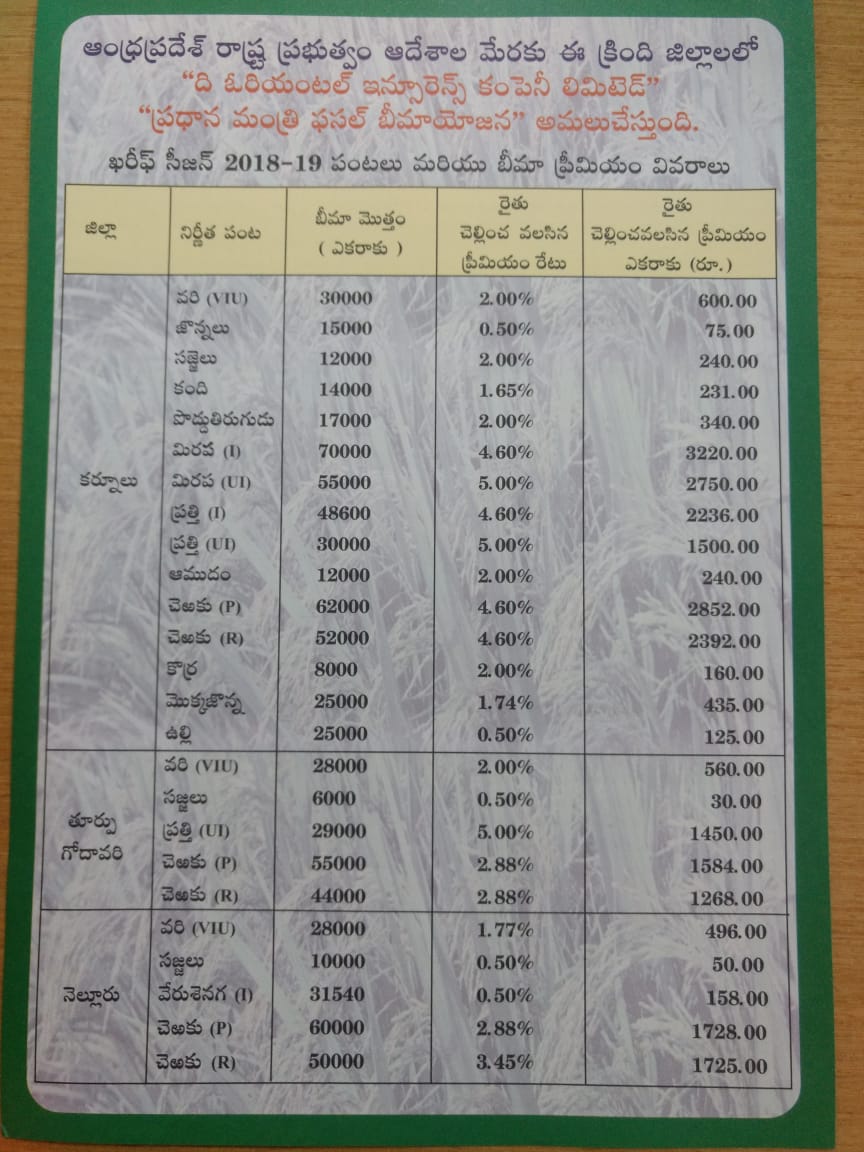 ఆంధ్రప్రదేశ్ రాష్ట్ర ప్రభుత్వం ఆదేశాల మేరకు ఈ క్రింది జిల్లాలలో
“ది ఓరియంటల్ ఇన్సూరెన్స్ కంపెనీ లిమిటెడ్”
“ప్రధాన మంత్రి ఫసల్ బీమాయోజన” అమలుచేస్తుంది.
ఖరీఫ్ సీజన్ 2018-19 పంటలు మరియు బీమా ప్రీమియం వివరాలు
జిల్లా నిర్ణీత పంట బీమా మొత్తం ( ఎకరాకు ) రైతు చెల్లించ వలసిన ప్రీమియం రేటు రైతు చెల్లించవలసిన ప్రీమియం ఎకరాకు (రూ.)
వరి (VIU) 30000 2.00% 600.00
జొన్నలు 15000 0.50% 75.00
సజ్జెలు 12000 2.00% 240.00
కంది 14000 1.65% 231.00
పొద్దుతిరుగుడు 17000 2.00% 340.00
మిరప (I) 70000 4.60% 3220.00
కర్నూలు మిరప (UI) 55000 5.00% 2750.00
ప్రత్తి (I) 48600 4.60% 2236.00
ప్రత్తి (UI) 30000 5.00% 1500.00
ఆముదం 12000 2.00% 240.00
చెఱకు (P) 62000 4.60% 2852.00
చెఱకు (R) 52000 4.60% 2392.00
కొర్ర 8000 2.00% 160.00
మొక్కజొన్న 25000 1.74% 435.00
ఉల్లి 25000 0.50% 125.00
వరి (VIU) 28000 2.00% 560.00
సజ్జలు 6000 0.50% 30.00
తూర్పు గోదావరి ప్రత్తి (UI) 29000 5.00% 1450.00
చెఱకు (P) 55000 2.88% 1584.00
చెఱకు (R) 44000 2.88% 1268.00
వరి (VIU) 28000 1.77% 496.00
సజ్జలు 10000 0.50% 50.00
నెల్లూరు వేరుశెనగ (I) 31540 0.50% 158.00
చెఱకు (P) 60000 2.88% 1728.00
చెఱకు (R) 50000 3.45% 1725.00